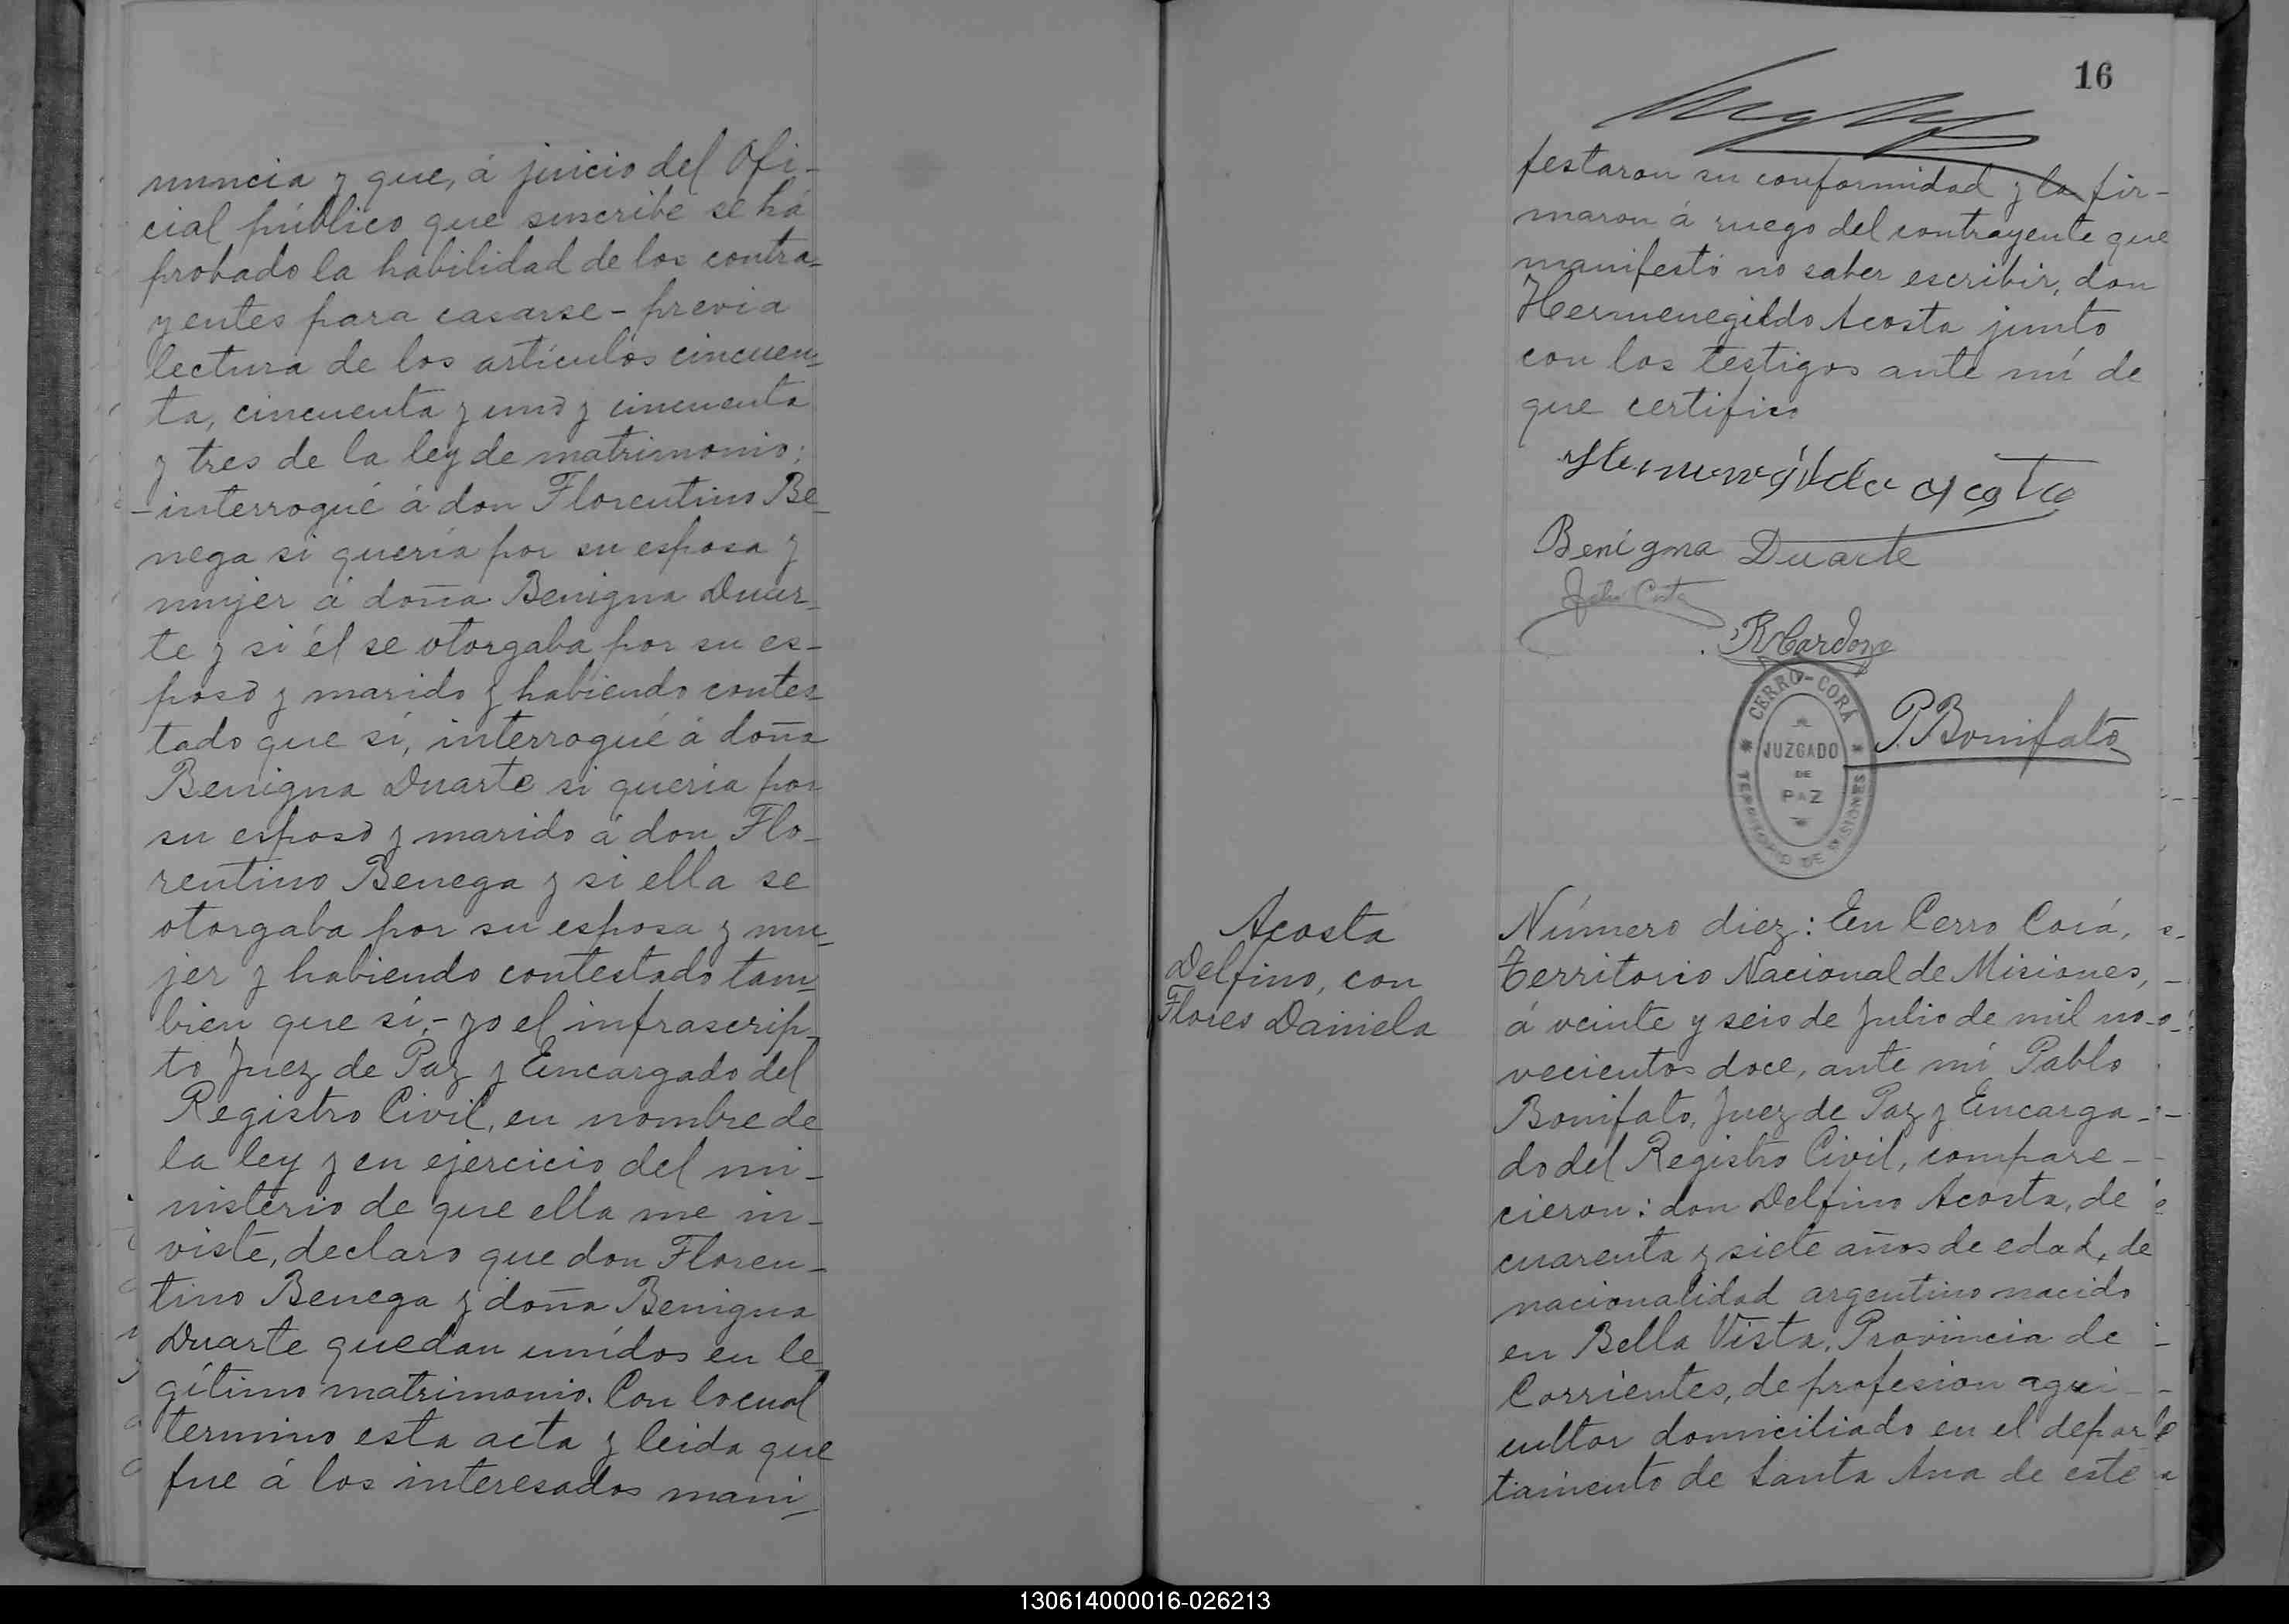 nuncia y que, á juicio del Ofi-
cial público que suscribe se há
probado la habilidad de los contra-
yentes para casarse - previa
lectura de los artículos cincuen-
ta, cincuenta y uno y cincuenta
y tres de la ley de matrimonio;
- interrogué á don Florentino Be-
nega si quería por su esposa y
mujer á doña Benigna Duar-
te y si él se otorgaba por su es-
poso y marido y habiendo contes-
tado que sí, interrogué á doña
Benigna Duarte si quería por
su esposo y marido á don Flo-
rentino Benega y si ella se
otorgaba por su esposa y mu-
jer y habiendo contestado tam-
bien que sí, - yo el infrascrip-
to Juez de Paz y Encargado del
Registro Civil, en nombre de
la ley y en ejercicio del mi-
nisterio de que ella me in-
viste, declaro que don Floren-
tino Benega y doña Benigna
Duarte quedan unídos en le-
gítimo matrimonio. Con lo cual
termino esta acta y leida que
fue á los interesados mani-
16
festaron su conformidad y la fir-
maron á ruego del contrayente que
manifestó no saber escribir, don
Hermenegildo Acosta junto
con los testigos ante mí de
que certifico
Benigna Duarte
R Cardozo
CERRO-CORÁ
JUZGADO
DE
PAZ
TERRITORIO DE MISIONES
P. Bonifato
Acosta
Delfino, con
Flores Daniela
Número diez: En Cerro Corá,
Territorio Nacional de Misiones,
á veinte y seis de Julio de mil no-
vecientos doce, ante mí Pablo
Bonifato, Juez de Paz y Encarga-
do del Registro Civil, compare-
cieron: don Delfino Acosta, de
cuarenta y siete años de edad, de
nacionalidad argentino nacido
en Bella Vista, Provincia de
Corrientes, de profesion agri-
cultor domiciliado en el depar-
tamento de Santa Ana de este
130614000016-026213